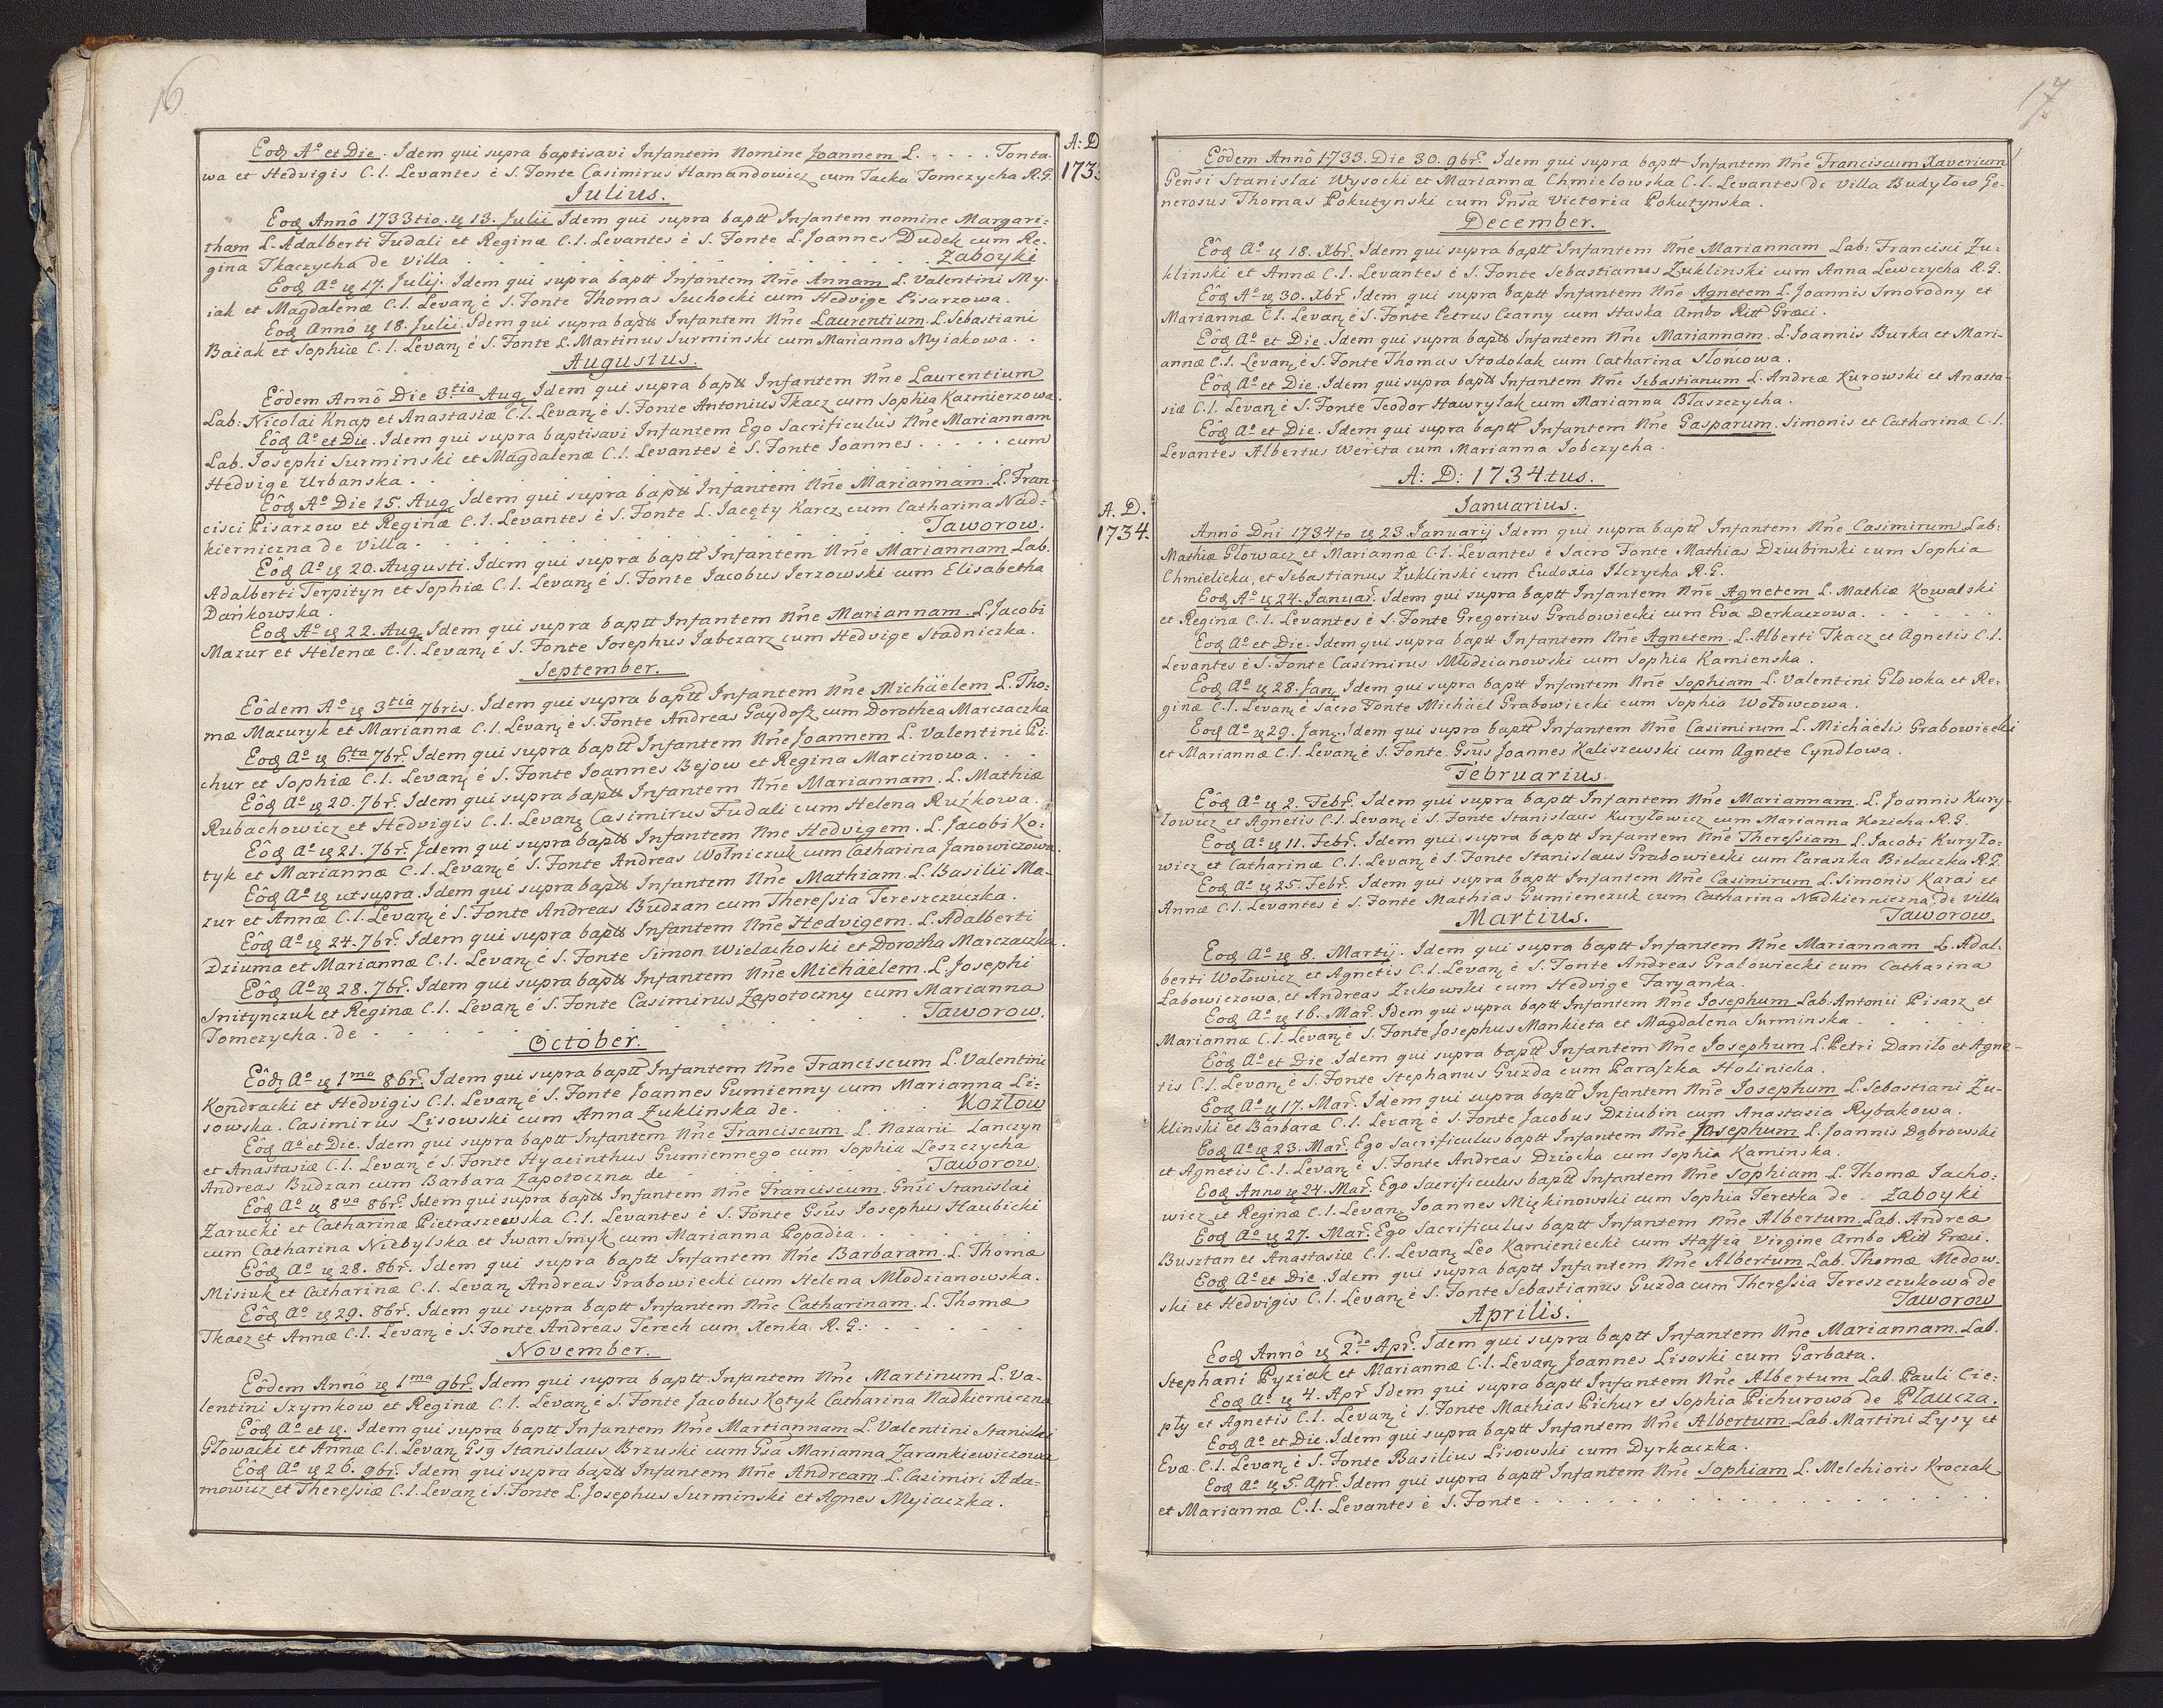 16
A: D
173
Eodē Aº et Die. Idem qui supra baptisavi Infantem Nomine Joannem L. . . . . Tonta-
wa et Hedvigis C.l. Levantes è S. Fonte Casimirus Hamandowicz cum Tacka Tomczycha R.G.
Julius.
Eod Annô 1733tio. 13. Julii Idem qui supra baptt Infantem nomine Margari=
tham L. Adalberti Fudali et Reginæ C.l. Levantes è S. Fonte L. Joannes Dudek cum Re-
gina Tkaczycha de Villa . . . . . Zaboyki
Eod Aº 17. Julij. Idem qui supra baptt Infantem Nne Annam L. Valentini My-
iak et Magdalenæ C.l. Levan è S. Fonte Thomas Suchocki cum Hedvige Pisarzowa.
Eod Annô 18. Julii. Idem qui supra baptt Infantem Nne Laurentium. L. Sebastiani
Baiak et Sophiæ C.l. Levan è S. Fonte L. Martinus Surminski cum Marianna Myiakowa. .
Augustus.
Eôdem Annô Die 3.tia Aug. Idem qui supra baptt Infantem Nne Laurentium
Lab: Nicolai Knap et Anastasiæ C.l. Levan è S. Fonte Antonius Tkacz cum Sophia Kazmierzowa.
Eôd Aº et Die. Idem qui supra baptisavi Infantem Ego Sacrificulus Nne Mariannam
Lab. Josephi Surminski et Magdalenæ C.l. Levantes è S. Fonte Joannes . . . . . cum
Hedvige Urbanska . . . . .
Eôd Aº Die 15. Aug. Idem qui supra baptt Infantem Nne Mariannam. L. Fran-
cisci Pisarzow et Reginæ C.l. Levantes è S. Fonte L. Jacęty Karcz cum Catharina Nad=
kierniczna de Villa . . . . . Taworow.
Eôd Aº 20. Augusti. Idem qui supra baptt Infantem Nne Mariannam Lab.
Adalberti Terpityn et Sophiæ C.l. Levan è S. Fonte Jacobus Jerzowski cum Elisabetha
Dańkowska .
Eod Aº 22. Aug. Idem qui supra baptt Infantem Nne Mariannam. L. Jacobi
Mazur et Helenæ C.l. Levan è S. Fonte Josephus Jabczarz cum Hedvige Stadniczka.
September.
Eôdem Aº 3tia 7bris. Idem qui supra baptt Infantem Nne Michäelem L. Tho=
mæ Mazuryk et Mariannæ C.l. Levan è S. Fonte Andreas Gaydosz cum Dorothea Marczaczka
Eod Aº 6ta 7br. Idem qui supra baptt Infantem Nne Joannem L. Valentini Pi-
chur et Sophiæ C.l. Levan è S. Fonte Joannes Bejow et Regina Marcinowa. . .
Eôd Aº 20. 7br. Idem qui supra baptt Infantem Nne Mariannam. L. Mathiæ
Rubachowicz et Hedvigis C.l. Levan Casimirus Fudali cum Helena Ruźkowa.
Eôd Aº 21. 7br. Idem qui supra baptt Infantem Nne Hedvigem. L. Jacobi Ko=
tyk et Mariannæ C.l. Levan è S. Fonte Andreas Wołniczuk cum Catharina Janowiczowa.
Eôd Aº utsupra. Idem qui supra baptt Infantem Nne Mathiam. L. Basilii Ma-
zur et Annæ C.l. Levan è S. Fonte Andreas Budzan cum Theressia Tereszczuczka.
Eôd Aº 24. 7br. Idem qui supra baptt Infantem Nne Hedvigem. L. Adalberti
Dziuma et Mariannæ C.l. Levan è S. Fonte Simon Wielachoski et Dorotha Marczaczka.
Eôd Aº 28. 7br. Idem qui supra baptt Infantem Nne Michäelem. L. Josephi
Snitynczuk et Reginæ C.l. Levan è S. Fonte Casimirus Zapotoczny cum Marianna
Tomczycha. de . . . . . Taworow.
October.
Eôd Aº 1ma 8br. Idem qui supra baptt Infantem Nne Franciscum L. Valentini
Kondracki et Hedvigis C.l. Levan è S. Fonte Joannes Gumienny cum Marianna Li=
sowska. Casimirus Lisowski cum Anna Zuklinska de. . . . Kozłow
Eôd Aº et Die. Idem qui supra baptt Infantem Nne Franciscum. L. Nazarii Lanczyn
et Anastasiæ C.l. Levan è S. Fonte Hyacinthus Gumiennego cum Sophia Leszczycha
Andreas Budzan cum Barbara Zapotoczna de . . . . . Taworow.
Eôd Aº 8va 8br. Idem qui supra baptt Infantem Nne Franciscum. Gnsi Stanislai
Zarucki et Catharinæ Pietraszewska C.l. Levantes è S. Fonte Gsus Josephus Haubicki
cum Catharina Niebylska et Iwan Smyk cum Marianna Popadia . . . . .
Eôd Aº 28. 8br. Idem qui supra baptt Infantem Nne Barbaram. L. Thomæ
Misiuk et Catharinæ C.l. Levan Andreas Grabowiecki cum Helena Młodzianowska.
Eôd Aº 29. 8br. Idem qui supra baptt Infantem Nne Catharinam. L. Thomæ
Tkacz et Annæ C.l. Levan è S. Fonte Andreas Terech cum Xenka R. G.: . . . . .
November.
Eôdem Annô 1ma 9br. Idem qui supra baptt Infantem Nne Martinum L. Va-
lentini Szymkow et Reginæ C.l. Levan è S. Fonte Jacobus Kotyk Catharina Nadkierniczna
Eôd Aº et . Idem qui supra baptt Infantem Nne Martiannam L. Valentini Stanislai
Głowacki et Annæ C.l. Levan Gsg Stanislaus Brzuski cum Gsa Marianna Zarankiewiczowa
Eôd Aº 26. 9br. Idem qui supra baptt Infantem Nne Andream L. Casimiri Ada-
mowicz et Theressiæ C.l. Levan è S. Fonte L. Josephus Surminski et Agnes Myiaczka.
17.
Eôdem Annô 1733. Die 30. 9br. Idem qui supra baptt Infantem Nne Franciscum Xaverium
Gensi Stanislai Wysocki et Mariannæ Chmielowska C.l. Levantes de Villa Budyłow Ge-
nerosus Thomas Pokutynski cum Gnsa Victoria Pokutynska .
December.
Eôd Aº 18. Xbr. Idem qui supra baptt Infantem Nne Mariannam Lab: Francisci Zu=
klinski et Annæ C.l. Levantes è S. Fonte Sebastianus Zuklinski cum Anna Lewczycha R.G.
Eôd Aº 30. Xbr. Idem qui supra baptt Infantem Nne Agnetem L. Joannis Smorodny et
Mariannæ C.l. Levan è S. Fonte Petrus Czarny cum Haska Ambo Ritt Græci.
Eôd Aº et Die. Idem qui supra baptt Infantem Nne Mariannam. L. Joannis Burka et Mari-
annæ C.l. Levan è S. Fonte Thomas Stodolak cum Catharina Słoncowa.
Eôd Aº et Die. Idem qui supra baptt Infantem Nne Sebastianum L. Andreæ Kurowski et Anasta-
siæ C.l. Levan è S. Fonte Teodor Hawrylak cum Marianna Błaszczycha.
Eôd Aº et Die. Idem qui supra baptt Infantem Nne Gasparum. Simonis et Catharinæ C.l.
Levantes Albertus Wereta cum Marianna Jobczycha.
A: D: 1734.tus.
Januarius.
A. D.
1734.
Annô Dni 1734to 23. Januarij Idem qui supra baptt Infantem Nne Casimirum Lab:
Mathiæ Głowacz et Mariannæ C.l. Levantes è Sacro Fonte Mathias Dziubinski cum Sophia
Chmielicka, et Sebastianus Zuklinski cum Eudoxia Ilczycha R.G.
Eod Aº 24. Januar. Idem qui supra baptt Infantem Nne Agnetem L. Mathiæ Kowalski
et Reginæ C.l. Levantes è S. Fonte Gregorius Grabowiecki cum Eva Derkaczowa. . . . . .
Eod Aº et Die. Idem qui supra baptt Infantem Nne Agnetem. L. Alberti Tkacz et Agnetis C.l.
Levantes è S. Fonte Casimirus Młodzianowski cum Sophia Kamienska.
Eod Aº 28. Jan. Idem qui supra baptt Infantem Nne Sophiam L. Valentini Głowka et Re-
ginæ C.l. Levan è Sacro Fonte Michäel Grabowiecki cum Sophia Wołowcowa.
Eod Aº 29. Jan. Idem qui supra baptt Infantem Nne Casimirum L. Michäelis Grabowiecki
et Mariannæ C.l. Levan è S. Fonte. Gsus Joannes Kaliszewski cum Agnete Cyndlowa.
Februarius.
Eôd Aº 2. Febr. Idem qui supra baptt Infantem Nne Mariannam. L. Joannis Kury-
łowicz et Agnetis C.l. Levan è S. Fonte Stanislaus Kuryłowicz cum Marianna Kozicha R.G.
Eod Aº 11. Febr. Idem qui supra baptt Infantem Nne Theressiam L. Jacobi Kuryło-
wicz et Catharinæ C.l. Levan è S. Fonte Stanislaus Grabowiecki cum Paraszka Bielaczka R.G.
Eod Aº 25. Febr. Idem qui supra baptt Infantem Nne Casimirum L. Simonis Karaś et
Annæ C.l. Levantes è S. Fonte Mathias Gumienczuk cum Catharina Nadkierniczna, de Villa
Martius. Taworow.
Eod Aº 8. Martij. Idem qui supra baptt Infantem Nne Mariannam L. Adal-
berti Wołowicz et Agnetis C.l. Levan è S. Fonte Andreas Grabowiecki cum Catharina
Labowiczowa, et Andreas Zukowski cum Hedvige Faryanka.
Eod Aº 16. Mar. Idem qui supra baptt Infantem Nne Josephum Lab. Antonii Pisarz et
Mariannæ C.l. Levan è S. Fonte Josephus Mankieta et Magdalena Surminska . . . . .
Eôd Aº et Die. Idem qui supra baptt Infantem Nne Josephum L. Petri Daniło et Agne-
tis C.l. Levan è S. Fonte Stephanus Guzda cum Paraszka Holinicka.
Eod Aº 17. Mar. Idem qui supra baptt Infantem Nne Josephum L. Sebastiani Zu-
klinski et Barbaræ C.l. Levan è S. Fonte Jacobus Dziubin cum Anastasia Rybakowa.
Eod Aº 23. Mar. Ego Sacrificulus baptt Infantem Nne Josephum L. Joannis Dąbrowski
et Agnetis C.l. Levan è S. Fonte Andreas Dziocka cum Sophia Kaminska.
Eod Anno 24. Mar. Ego Sacrificulus baptt Infantem Nne Sophiam L. Thomæ Jacho=
wicz et Reginæ C.l. Levan Joannes Miękinowski cum Sophia Feretka de . Zaboyki
Eod Aº 27. Mar. Ego Sacrificulus baptt Infantem Nne Albertum. Lab. Andreæ
Busztan et Anastasiæ C.l. Levan Leo Kamieniecki cum Haffia Virgine Ambo Ritt Græci.
Eod Aº et Die. Idem qui supra baptt Infantem Nne Albertum Lab. Thomæ Medow-
ski et Hedvigis C.l. Levan è S. Fonte Sebastianus Guzda cum Theressia Tereszczukowa de
Taworow
Aprilis.
Eod Annô 2da Apr. Idem qui supra baptt Infantem Nne Mariannam. Lab.
Stephani Pyziak et Mariannæ C.l. Levan Joannes Lisoski cum Garbata.
Eod Aº 4. Apr. Idem qui supra baptt Infantem Nne Albertum Lab. Pauli Cie-
pły et Agnetis C.l. Levan è S. Fonte Mathias Pichur et Sophia Pichurowa de Płaucza.
Eod Aº et Die. Idem qui supra baptt Infantem Nne Albertum. Lab. Martini Łysy et
Evæ. C.l. Levan è S. Fonte Basilius Lisowski cum Dyrkaczka.
Eod Aº 5. Apr. Idem qui supra baptt Infantem Nne Sophiam L. Melchioris Kroczak
et Mariannæ C.l. Levantes è S. Fonte . . . . .